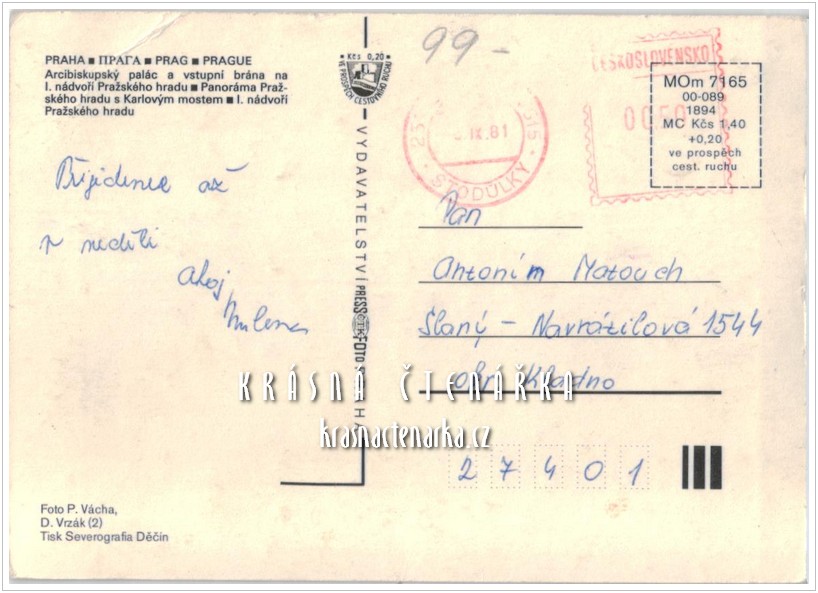 PRAHA ■ ПРАГА ■ PRAG ■ PRAGUE
Arcibiskupský palác a vstupní brána na
I. nádvoří Pražského hradu ■ Panoráma Praž-
ského hradu s Karlovým mostem ■ I. nádvoří
Pražského hradu
Přijedeme až
v neděli
ahoj
Milena
• Kčs 0,20 •
VE PROSPĚCH CESTOVNÍHO RUCHU
VYDAVATELSTVÍ PRESSFOTO PRAHA
99-
IX.81
STODŮLKY
ČESKOSLOVENSKO
MOm 7165
00-089
1894
MC Kčs 1,40
+0,20
ve prospěch
cest. ruchu
Pan
Antonín Matouch
Slaný - Navrátilová 1544
okr. Kladno
27401
KRÁSNÁ ČTENÁŘKA
krasnactenarka.cz
Foto P. Vácha,
D. Vrzák (2)
Tisk Severografia Děčín